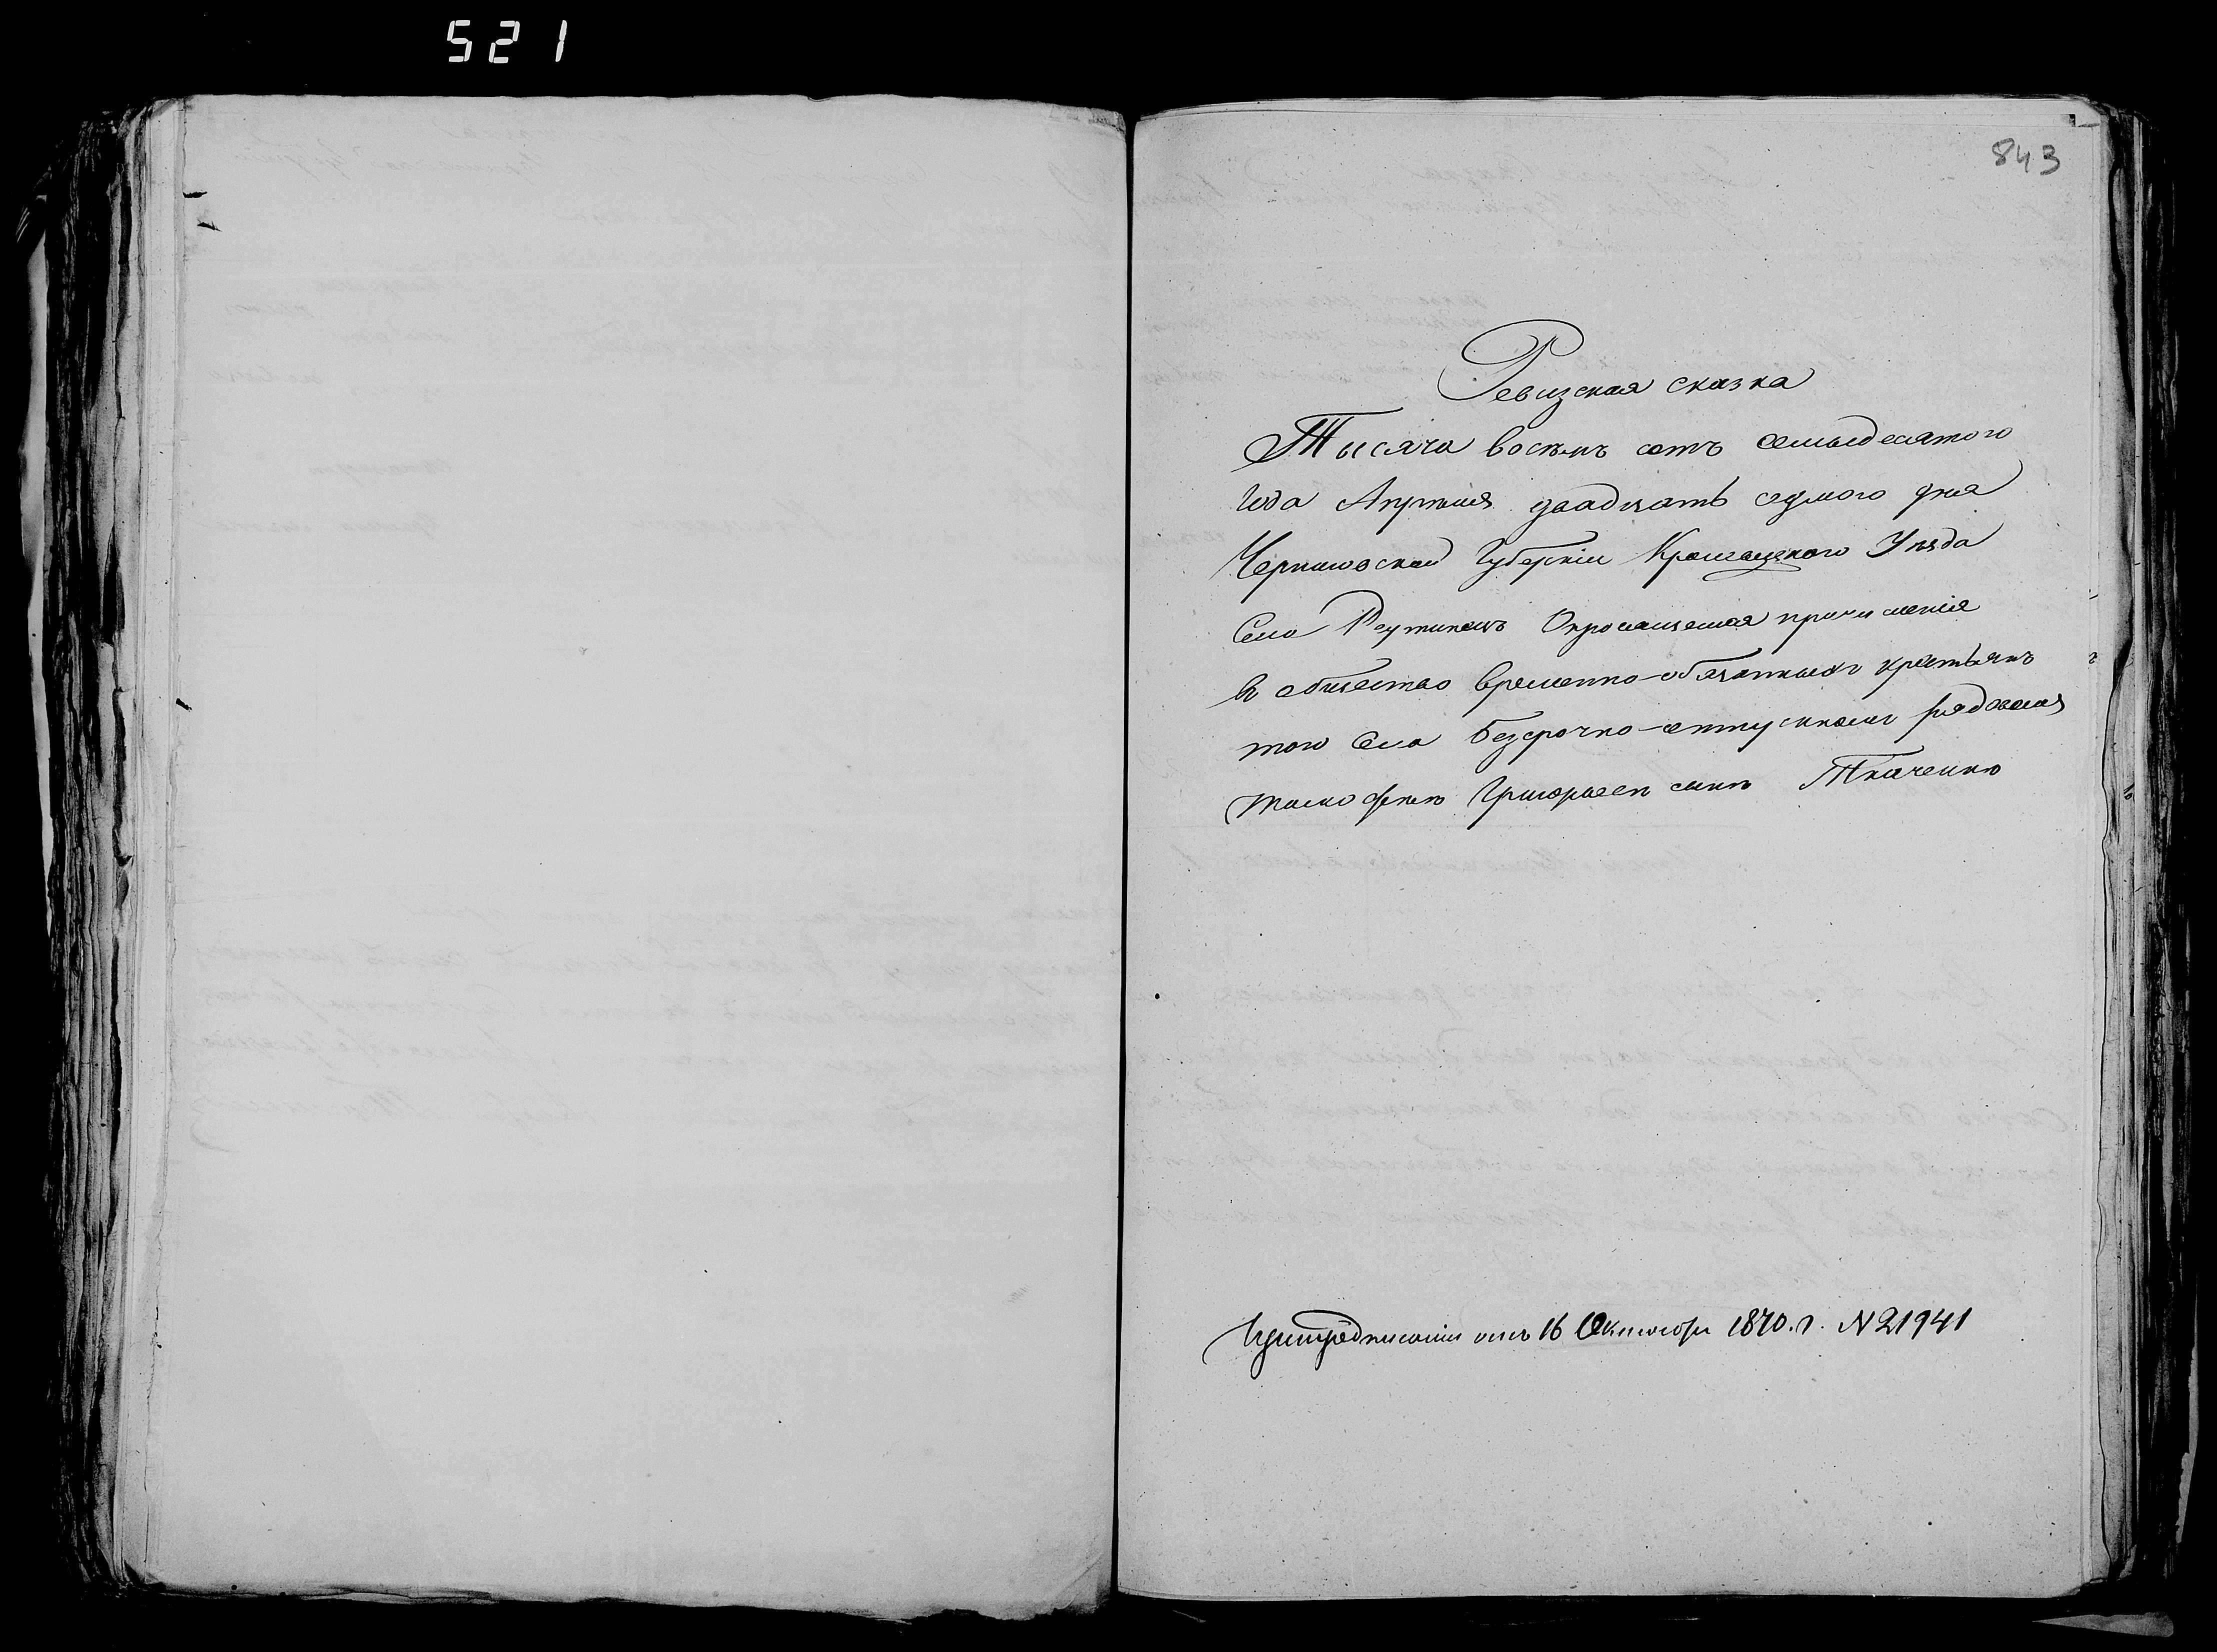 521
843
Ревизская сказка
Тысяча восемь сотъ семьдесятого
года Апреля двадцать седмого дня
Черниговской Губерніи Кролевецкого Уезда
Села Реутинецъ О просящемся причисленія
въ общество временно-обязанныхъ крестьянъ
того Села безсрочно-отпускномъ рядовомъ
Тимофеемъ Григорьевъ сынъ Ткаченко
При предписаніи отъ 16 Октября 1870. г. N 21941